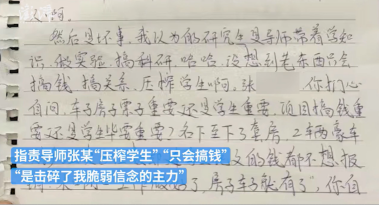 然后是坏事，我以为的研究生是导师带着学知
识，做实验，搞科研，哈哈，没想到老东西只会
搞钱，搞关系，压榨学生啊，张 你扪心
自问，车子房子票子重要还是学生重要，项目搞钱重
要还是学生毕业重要？名下至下了套房，2车两豪车
的钱都不想报
指责导师张某“压榨学生”“只会搞钱”
“是击碎了我脆弱信念的主力”
房子车子就有了”，你自